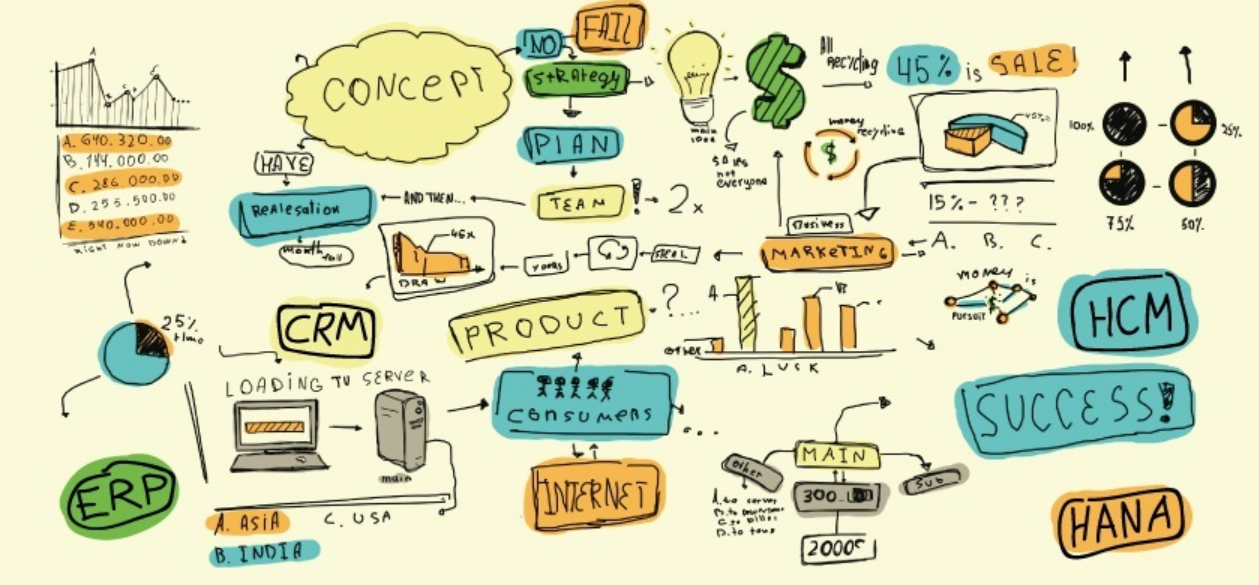 NO
FAIL
CONCEPT
STRATEGY
All
Recycling
45% is SALE!
A
C
A. 640.320.00
B. 144.000.00
C. 286.000.00
D. 255.500.00
E. 540.000.00
RIGHT NOW DOWN
HAVE
PLAN
main
idea
$
money
recycling
45%
100%
25%
75%
50%
sales
not
everyone
REALESATION
AND THEN...
TEAM
! 2x
15% - ???
A. B. C.
Business
MARKETING
month
full
46x
DRAW
works
CRM
PRODUCT
?...
A
B
C
other
A. LUCK
MONEY is
$
PURSUIT
HCM
25%
time
LOADING TO SERVER
main
CONSUMERS
...
SUCCESS!
ERP
INTERNET
MAIN
other
SUB
300
A. to server
D. to
2000
A. ASIA
B. INDIA
C. USA
HANA